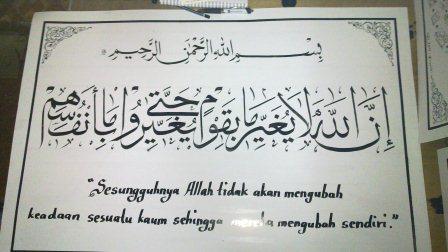 بِسْمِ اللهِ الرَّحْمٰنِ الرَّحِيْمِ
إِنَّ اللهَ لَا يُغَيِّرُ مَا بِقَوْمٍ حَتَّى يُغَيِّرُوا مَا بِأَنْفُسِهِمْ
"Sesungguhnya Allah tidak akan mengubah
keadaan sesuatu kaum sehingga mereka mengubah sendiri."